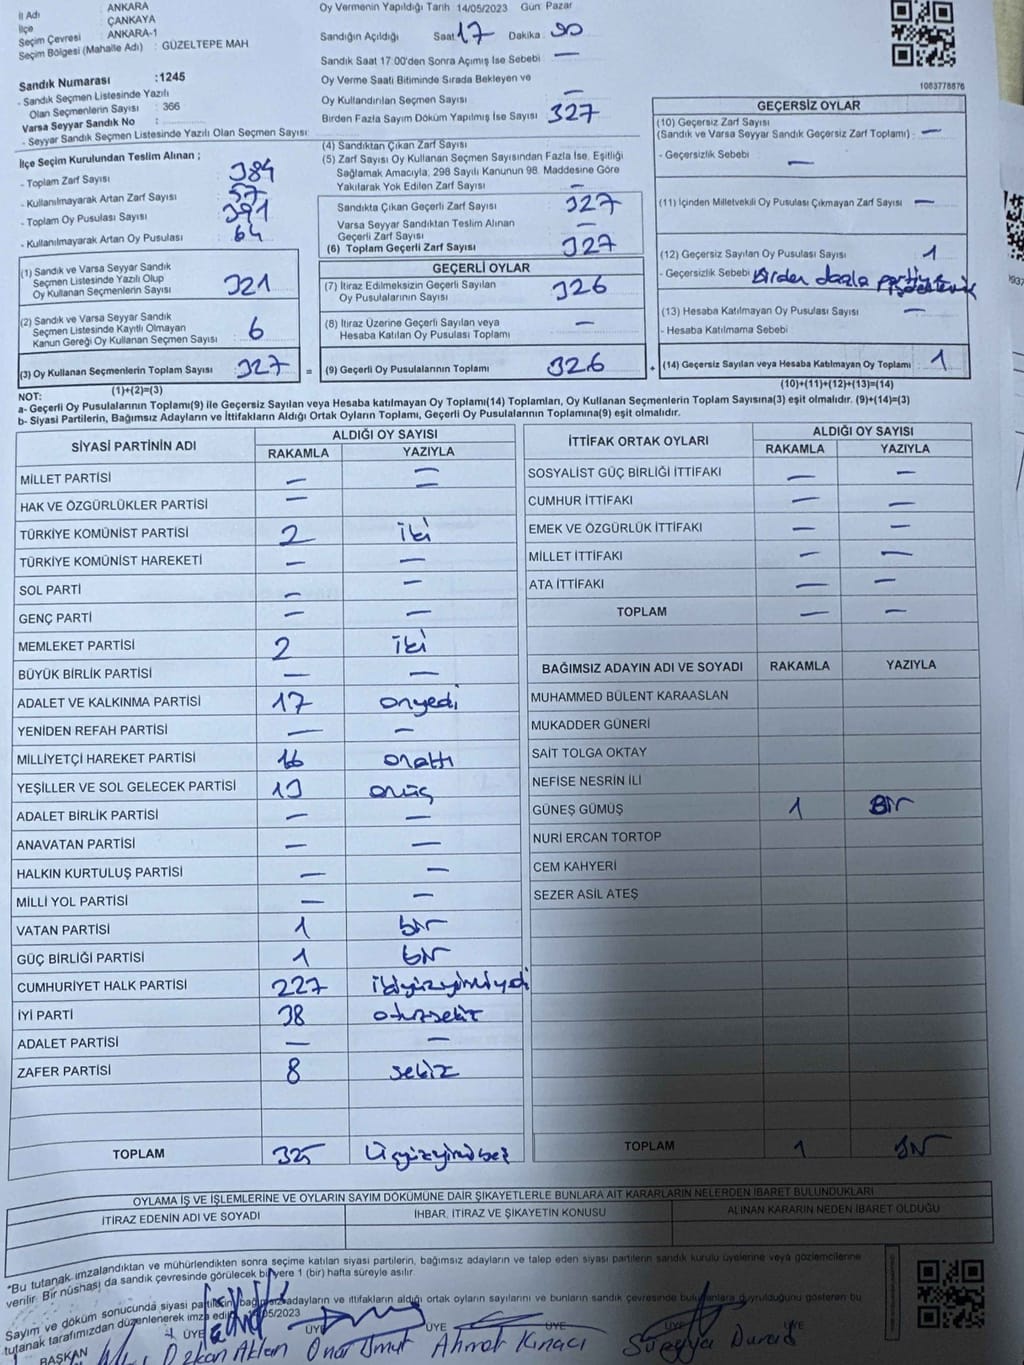 İl Adı : ANKARA
İlçe : ÇANKAYA
Seçim Çevresi : ANKARA-1
Seçim Bölgesi (Mahalle Adı) : GÜZELTEPE MAH
Sandık Numarası :1245
- Sandık Seçmen Listesinde Yazılı
Olan Seçmenlerin Sayısı : 366
Varsa Seyyar Sandık No :
- Seyyar Sandık Seçmen Listesinde Yazılı Olan Seçmen Sayısı:
İlçe Seçim Kurulundan Teslim Alınan ;
- Toplam Zarf Sayısı 384
- Kullanılmayarak Artan Zarf Sayısı 57
- Toplam Oy Pusulası Sayısı 391
- Kullanılmayarak Artan Oy Pusulası 64
(1) Sandık ve Varsa Seyyar Sandık
Seçmen Listesinde Yazılı Olup
Oy Kullanan Seçmenlerin Sayısı 321
(2) Sandık ve Varsa Seyyar Sandık
Seçmen Listesinde Kayıtlı Olmayan
Kanun Gereği Oy Kullanan Seçmen Sayısı : 6
(3) Oy Kullanan Seçmenlerin Toplam Sayısı 327 =
(1)+(2)=(3)
Oy Vermenin Yapıldığı Tarih 14/05/2023 Gün: Pazar
Sandığın Açıldığı Saat 17 Dakika
Sandık Saat 17.00'den Sonra Açımış İse Sebebi —
Oy Verme Saati Bitiminde Sırada Bekleyen ve
Oy Kullandırılan Seçmen Sayısı —
Birden Fazla Sayım Döküm Yapılmış İse Sayısı 327
(4) Sandıktan Çıkan Zarf Sayısı
(5) Zarf Sayısı Oy Kullanan Seçmen Sayısından Fazla İse, Eşitliği
Sağlamak Amacıyla, 298 Sayılı Kanunun 98. Maddesine Göre
Yakılarak Yok Edilen Zarf Sayısı —
Sandıkta Çıkan Geçerli Zarf Sayısı 327
Varsa Seyyar Sandıktan Teslim Alınan
Geçerli Zarf Sayısı —
(6) Toplam Geçerli Zarf Sayısı 327
GEÇERLİ OYLAR
(7) İtiraz Edilmeksizin Geçerli Sayılan
Oy Pusulalarının Sayısı 326
(8) İtiraz Üzerine Geçerli Sayılan veya
Hesaba Katılan Oy Pusulası Toplamı —
(9) Geçerli Oy Pusulalarının Toplamı 326 +
1063778876
GEÇERSİZ OYLAR
(10) Geçersiz Zarf Sayısı
(Sandık ve Varsa Seyyar Sandık Geçersiz Zarf Toplamı) : —
- Geçersizlik Sebebi —
(11) İçinden Milletvekili Oy Pusulası Çıkmayan Zarf Sayısı —
(12) Geçersiz Sayılan Oy Pusulası Sayısı 1
- Geçersizlik Sebebi Birden fazla partiye
(13) Hesaba Katılmayan Oy Pusulası Sayısı —
- Hesaba Katılmama Sebebi
(14) Geçersiz Sayılan veya Hesaba Katılmayan Oy Toplamı 1
(10)+(11)+(12)+(13)=(14)
NOT:
a- Geçerli Oy Pusulalarının Toplamı(9) ile Geçersiz Sayılan veya Hesaba katılmayan Oy Toplamı(14) Toplamları, Oy Kullanan Seçmenlerin Toplam Sayısına(3) eşit olmalıdır. (9)+(14)=(3)
b- Siyasi Partilerin, Bağımsız Adayların ve İttifakların Aldığı Ortak Oyların Toplamı, Geçerli Oy Pusulalarının Toplamına(9) eşit olmalıdır.
SİYASİ PARTİNİN ADI ALDIĞI OY SAYISI
RAKAMLA YAZIYLA
MİLLET PARTİSİ — —
HAK VE ÖZGÜRLÜKLER PARTİSİ — —
TÜRKİYE KOMÜNİST PARTİSİ 2 iki
TÜRKİYE KOMÜNİST HAREKETİ — —
SOL PARTİ — —
GENÇ PARTİ — —
MEMLEKET PARTİSİ 2 iki
BÜYÜK BİRLİK PARTİSİ — —
ADALET VE KALKINMA PARTİSİ 17 onyedi
YENİDEN REFAH PARTİSİ — —
MİLLİYETÇİ HAREKET PARTİSİ 16 onaltı
YEŞİLLER VE SOL GELECEK PARTİSİ 13 onüç
ADALET BİRLİK PARTİSİ — —
ANAVATAN PARTİSİ — —
HALKIN KURTULUŞ PARTİSİ — —
MİLLİ YOL PARTİSİ — —
VATAN PARTİSİ 1 bir
GÜÇ BİRLİĞİ PARTİSİ 1 bir
CUMHURİYET HALK PARTİSİ 227 ikiyüzyirmiyedi
İYİ PARTİ 38 otuzsekiz
ADALET PARTİSİ — —
ZAFER PARTİSİ 8 sekiz
TOPLAM 325 üçyüzyirmibeş
İTTİFAK ORTAK OYLARI ALDIĞI OY SAYISI
RAKAMLA YAZIYLA
SOSYALİST GÜÇ BİRLİĞİ İTTİFAKI — —
CUMHUR İTTİFAKI — —
EMEK VE ÖZGÜRLÜK İTTİFAKI — —
MİLLET İTTİFAKI — —
ATA İTTİFAKI — —
TOPLAM — —
BAĞIMSIZ ADAYIN ADI VE SOYADI RAKAMLA YAZIYLA
MUHAMMED BÜLENT KARAASLAN
MUKADDER GÜNERİ
SAİT TOLGA OKTAY
NEFİSE NESRİN İLİ
GÜNEŞ GÜMÜŞ 1 BİR
NURİ ERCAN TORTOP
CEM KAHYERİ
SEZER ASIL ATEŞ
TOPLAM 1 BİR
OYLAMA İŞ VE İŞLEMLERİNE VE OYLARIN SAYIM DÖKÜMÜNE DAİR ŞİKAYETLERLE BUNLARA AİT KARARLARIN NELERDEN İBARET BULUNDUKLARI
İTİRAZ EDENİN ADI VE SOYADI İHBAR, İTİRAZ VE ŞİKAYETİN KONUSU ALINAN KARARIN NEDEN İBARET OLDUĞU
"Bu tutanak imzalandıktan ve mühürlendikten sonra seçime katılan siyasi partilerin, bağımsız adayların ve talep eden siyasi partilerin sandık kurulu üyelerine veya gözlemcilerine
verilir. Bir nüshası da sandık çevresinde görülecek bir yere 1 (bir) hafta süreyle asılır.
Sayım ve döküm sonucunda siyasi partilerin, bağımsız adayların ve ittifakların aldığı ortak oyların sayılarını ve bunların sandık çevresinde bulunanlara duyurulduğunu gösteren bu
tutanak tarafımızdan düzenlenerek imza edildi. /05/2023
BAŞKAN ÜYE ÜYE ÜYE ÜYE ÜYE
Özkan Onur Umut Ahmet Kınacı Süreyya